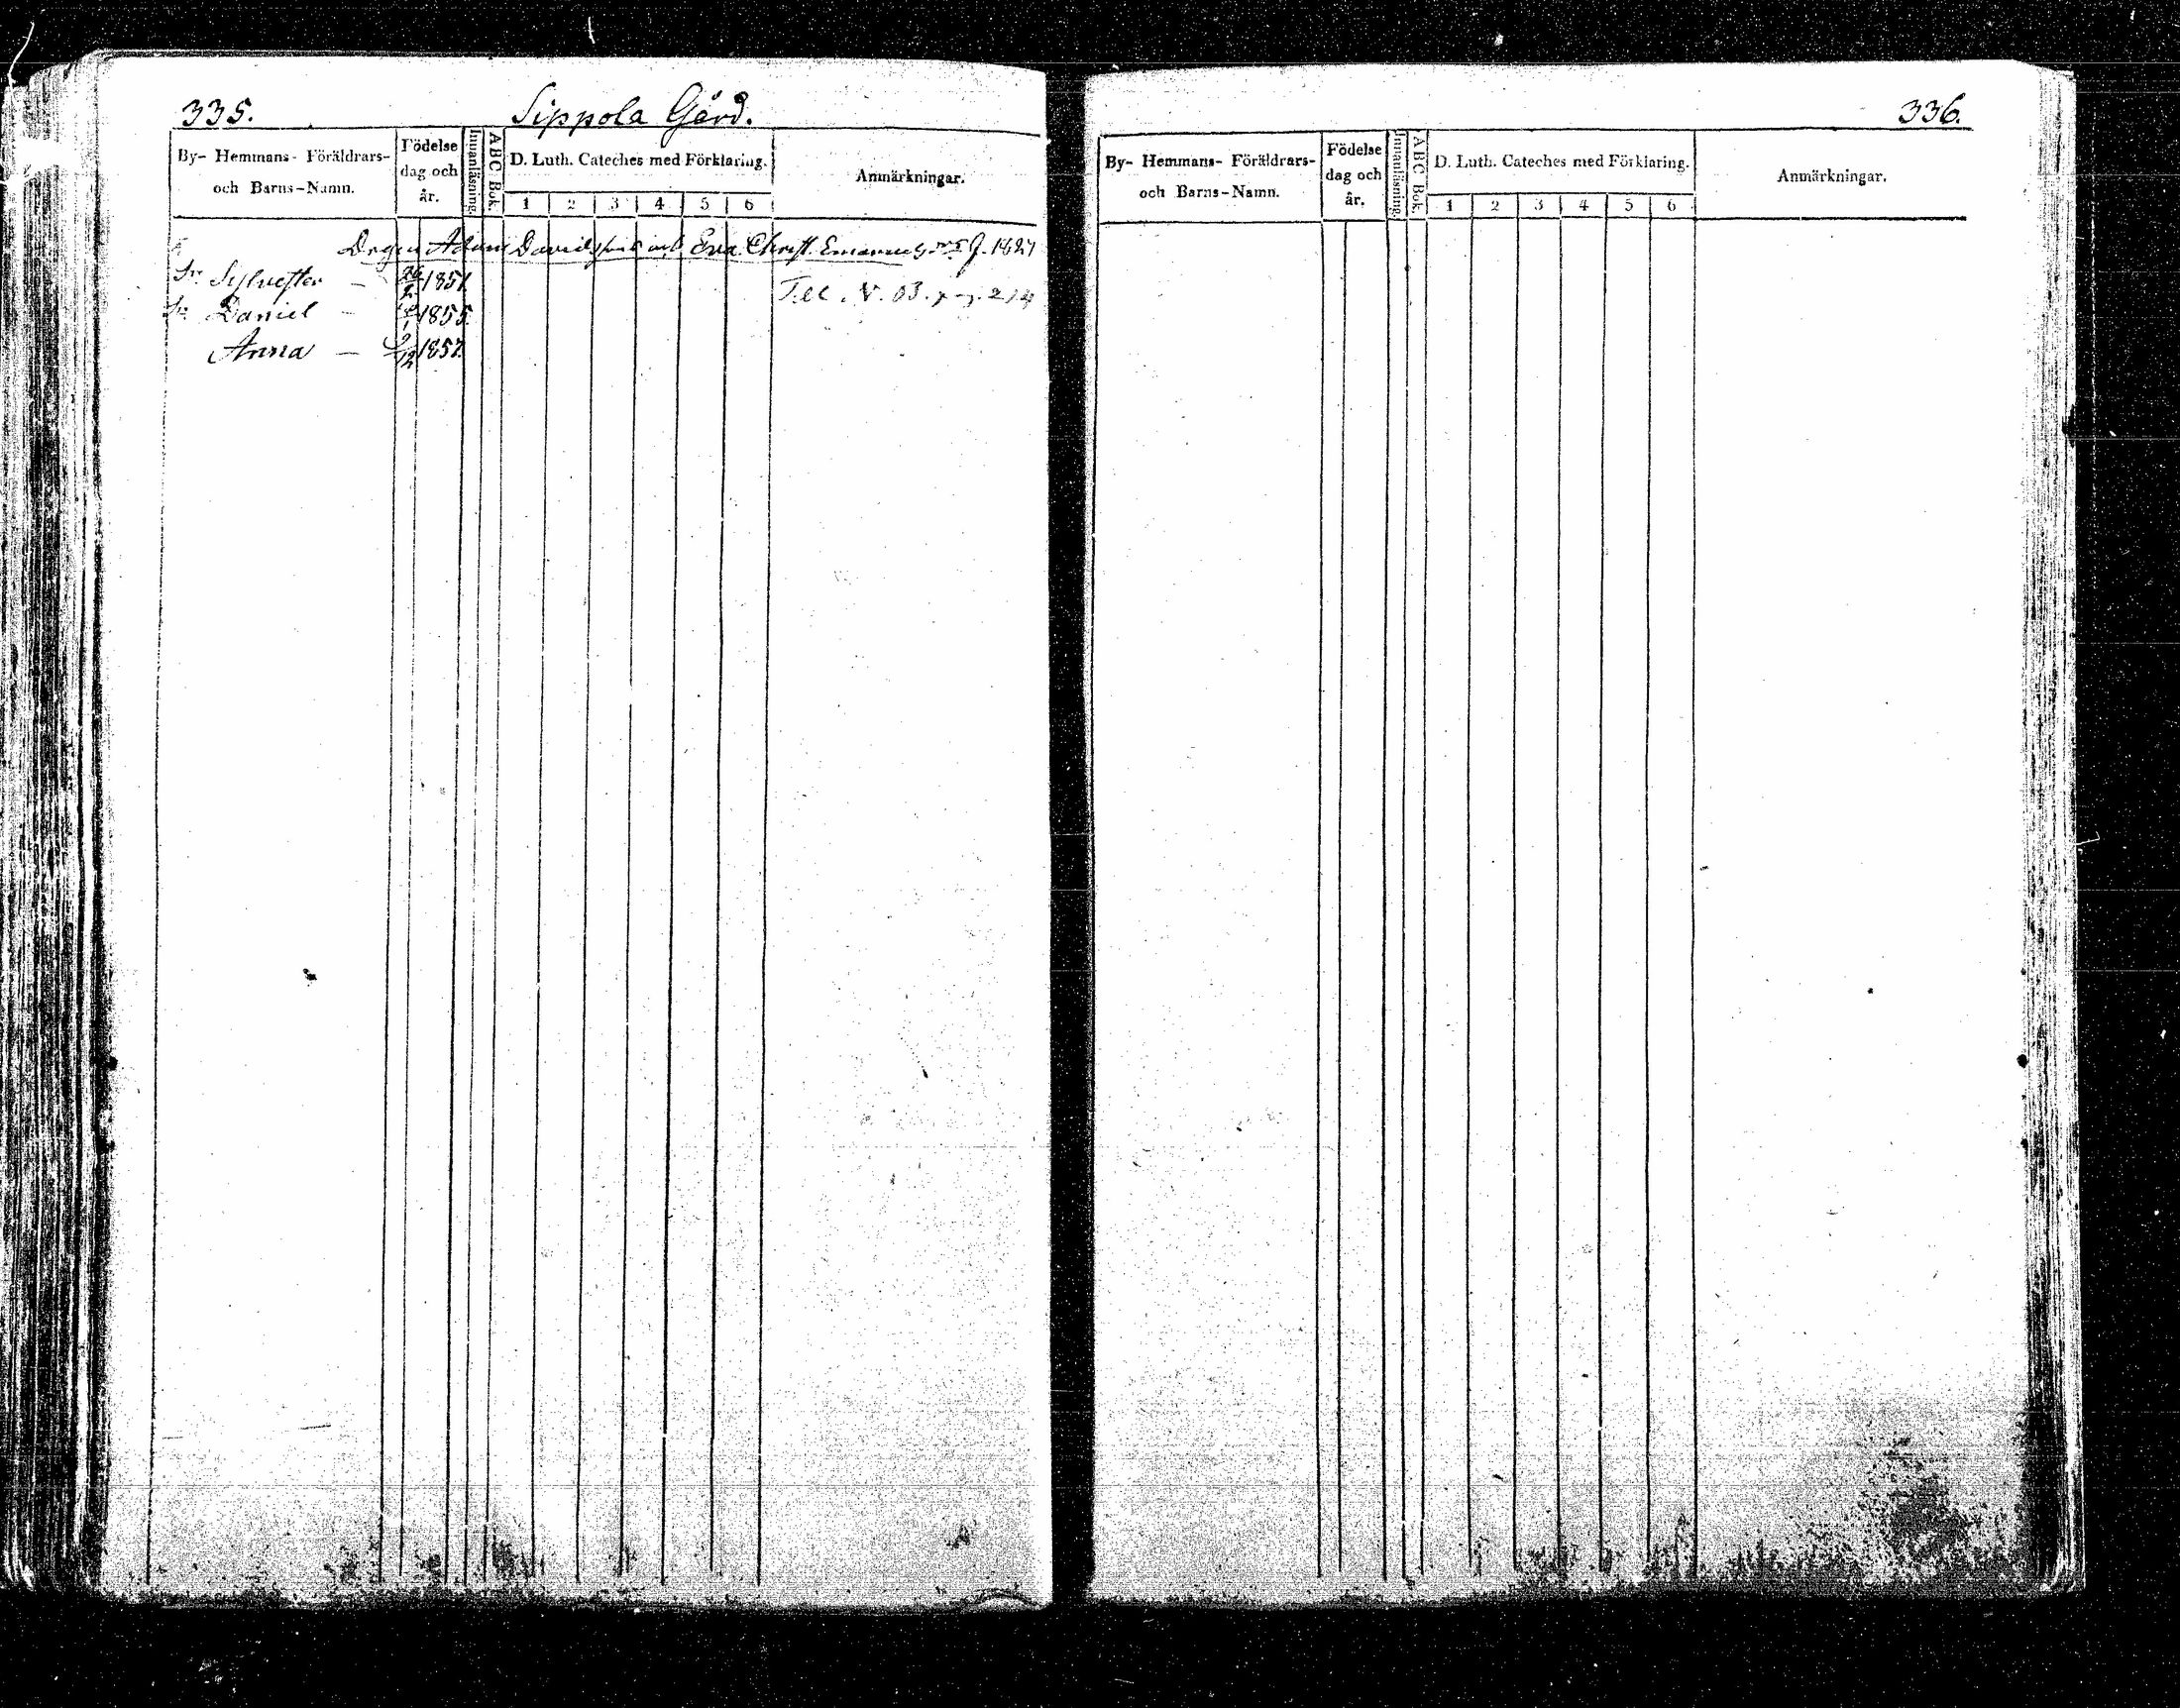 335.
Sippola Gård.
By- Hemmans- Föräldrars-
och Barns-Namn.
Födelse
dag och
år.
Innanläsning.
ABC Bok.
D. Luth. Cateches med Förklaring.
1 2 3 4 5 6
Anmärkningar.
Adam Davids Eva Christ. 1827
Sylvester – 1851.
Till N. 03. pag. 214
Daniel – 1855.
Anna – 9/12 1857.
336.
By- Hemmans- Föräldrars-
och Barns-Namn.
Födelse
dag och
år.
Innanläsning.
ABC Bok.
D. Luth. Cateches med Förklaring.
1 2 3 4 5 6
Anmärkningar.